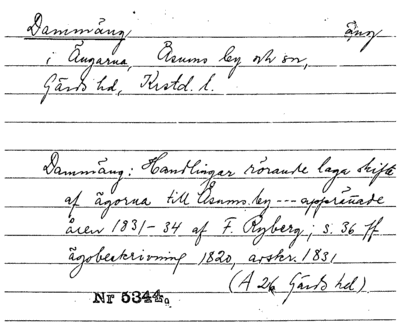 Dammäng äng
i Ängarna, Åsums by och sn,
Gärds hd, Krstd. l.
Dammäng: Handlingar rörande laga skifte
af ägorna till Åsums by --- upprättade
åren 1831-34 af F. Ryberg; s. 36 ff
ägobeskrivning 1820, avskr. 1831
(A 26 Gärds hd)
Nr 5344